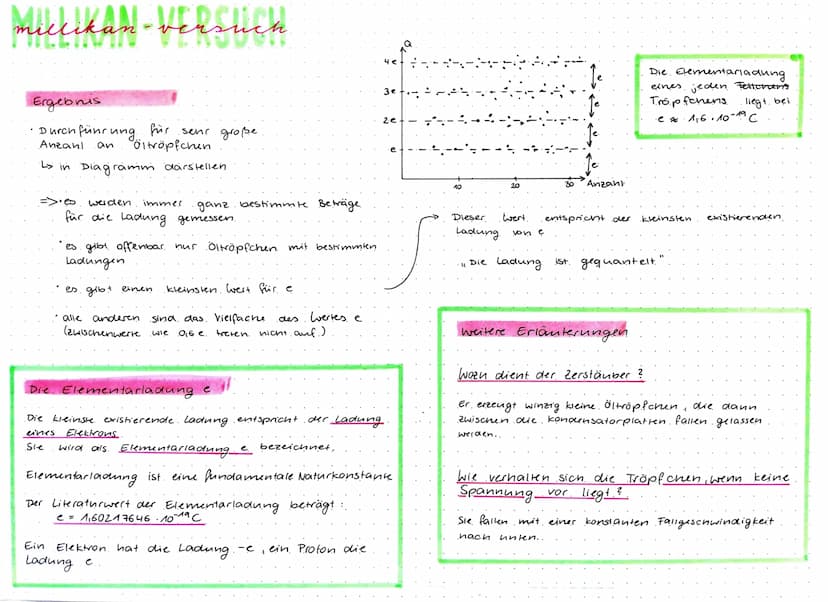 MILLIKAN-VERSUCH
millikan-versuch
Ergebnis
· Durchführung für sehr große
Anzahl an Öltröpfchen
↳ in Diagramm darstellen
=> · es werden immer ganz bestimmte Beträge
für die Ladung gemessen
· es gibt offenbar nur Öltröpfchen mit bestimmten
Ladungen
· es gibt einen kleinsten Wert für e
· alle anderen sind das Vielfache des Wertes e
(zwischenwerte wie 0,6 e treten nicht auf.)
Q
4e
3e
2e
e
e
e
e
e
10
20
30
Anzahl
Die Elementarladung
eines jeden
Tröpfchens liegt bei
e ≈ 1,6 · 10⁻¹⁹ C
Dieser Wert entspricht der kleinsten existierenden
Ladung von e
„Die Ladung ist gequantelt."
Die Elementarladung e
Die kleinste existierende Ladung entspricht der Ladung
eines Elektrons.
Sie wird als Elementarladung e bezeichnet.
Elementarladung ist eine fundamentale Naturkonstante
Der Literaturwert der Elementarladung beträgt:
e = 1,60217646 · 10⁻¹⁹ C
Ein Elektron hat die Ladung -e, ein Proton die
Ladung e.
Weitere Erläuterungen
Wozu dient der Zerstäuber?
Er erzeugt winzig kleine Öltröpfchen, die dann
zwischen die Kondensatorplatten fallen gelassen
werden.
Wie verhalten sich die Tröpfchen, wenn keine
Spannung vor liegt?
Sie fallen mit einer konstanten Fallgeschwindigkeit
nach unten.